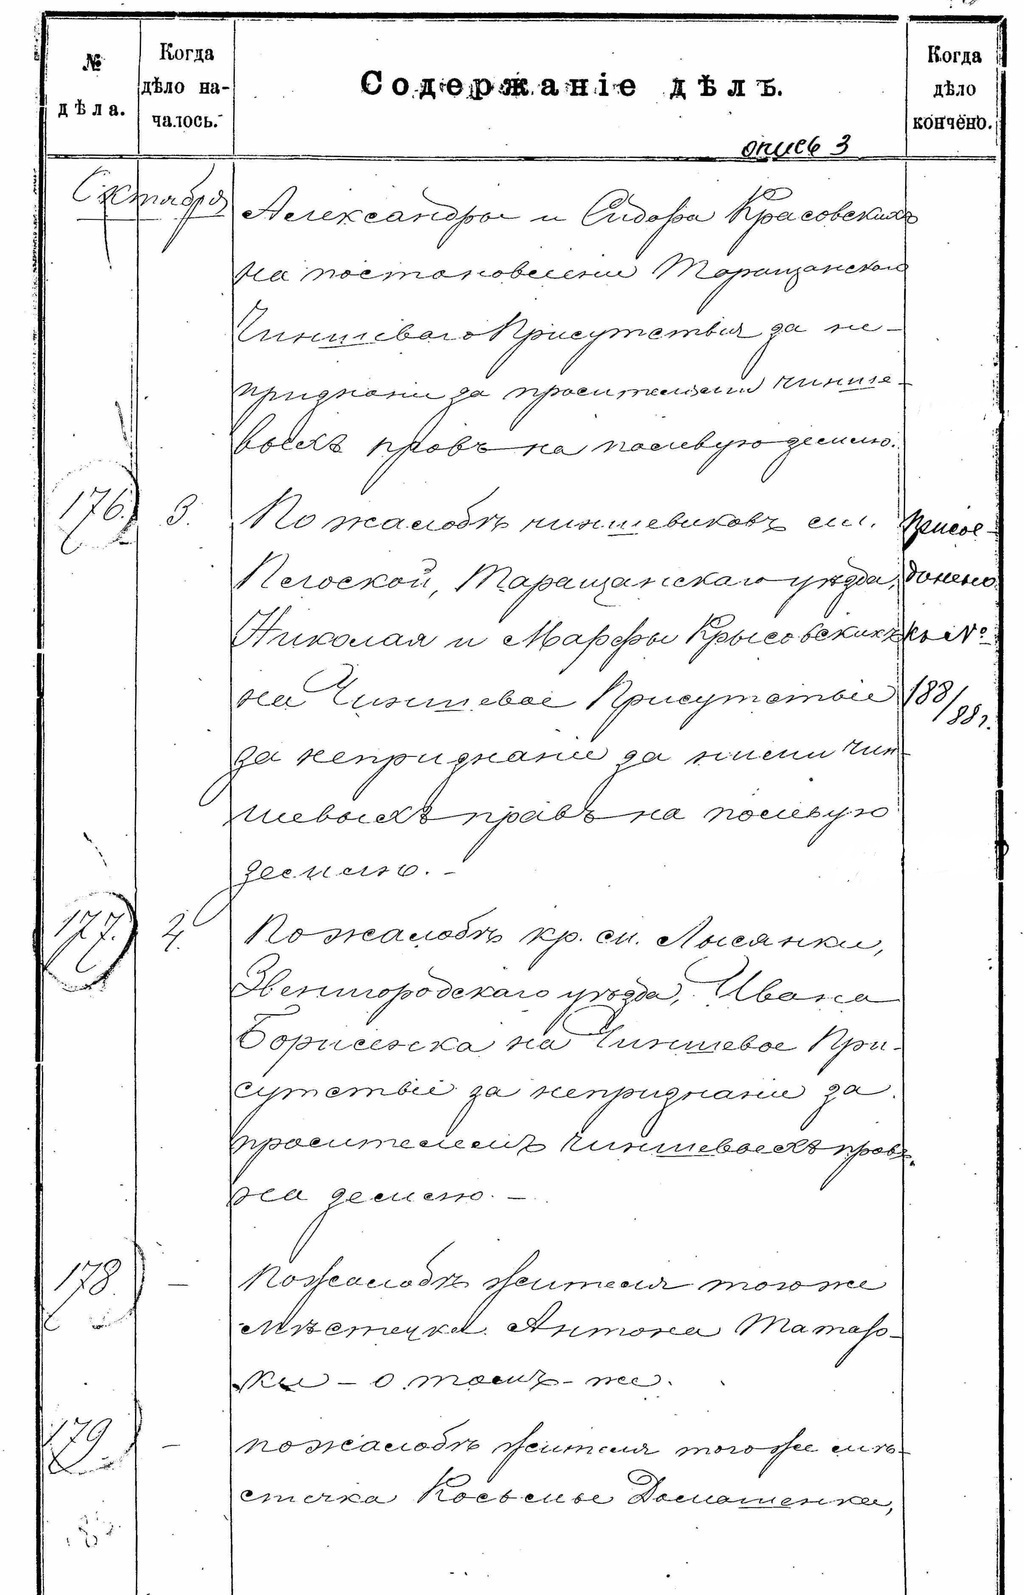 № дѣла.
Когда дѣло на-
чалось.
Содержаніе дѣлъ.
Когда дѣло кончено.
опись 3
Октября
Александры и Сидора Красовскихъ
на постановленіе Таращанскаго
Чиншеваго Присутствія за не-
признаніе за просителями чинше-
выхъ правъ на полевую землю.
176. 3. По жалобѣ чиншевиковъ м.
Присое-
Таращанскаго уѣзда,
динено
Николая и Марфы Крысовскихъ
къ №
на Чиншевое Присутствіе
188/88 г.
за непризнаніе за ними чин-
шевыхъ правъ на полевую
землю. —
177. 4. По жалобѣ кр. м. Лысянки,
Звенигородскаго уѣзда, Ивана
Борисенка на Чиншевое При-
сутствіе за непризнаніе за
просителемъ чиншевыхъ правъ
на землю. —
178. — По жалобѣ жителя того же
мѣстечка Антона
— о томъ-же.
179 — по жалобѣ жителя того же мѣ-
стечка Косьмы Домашенка,